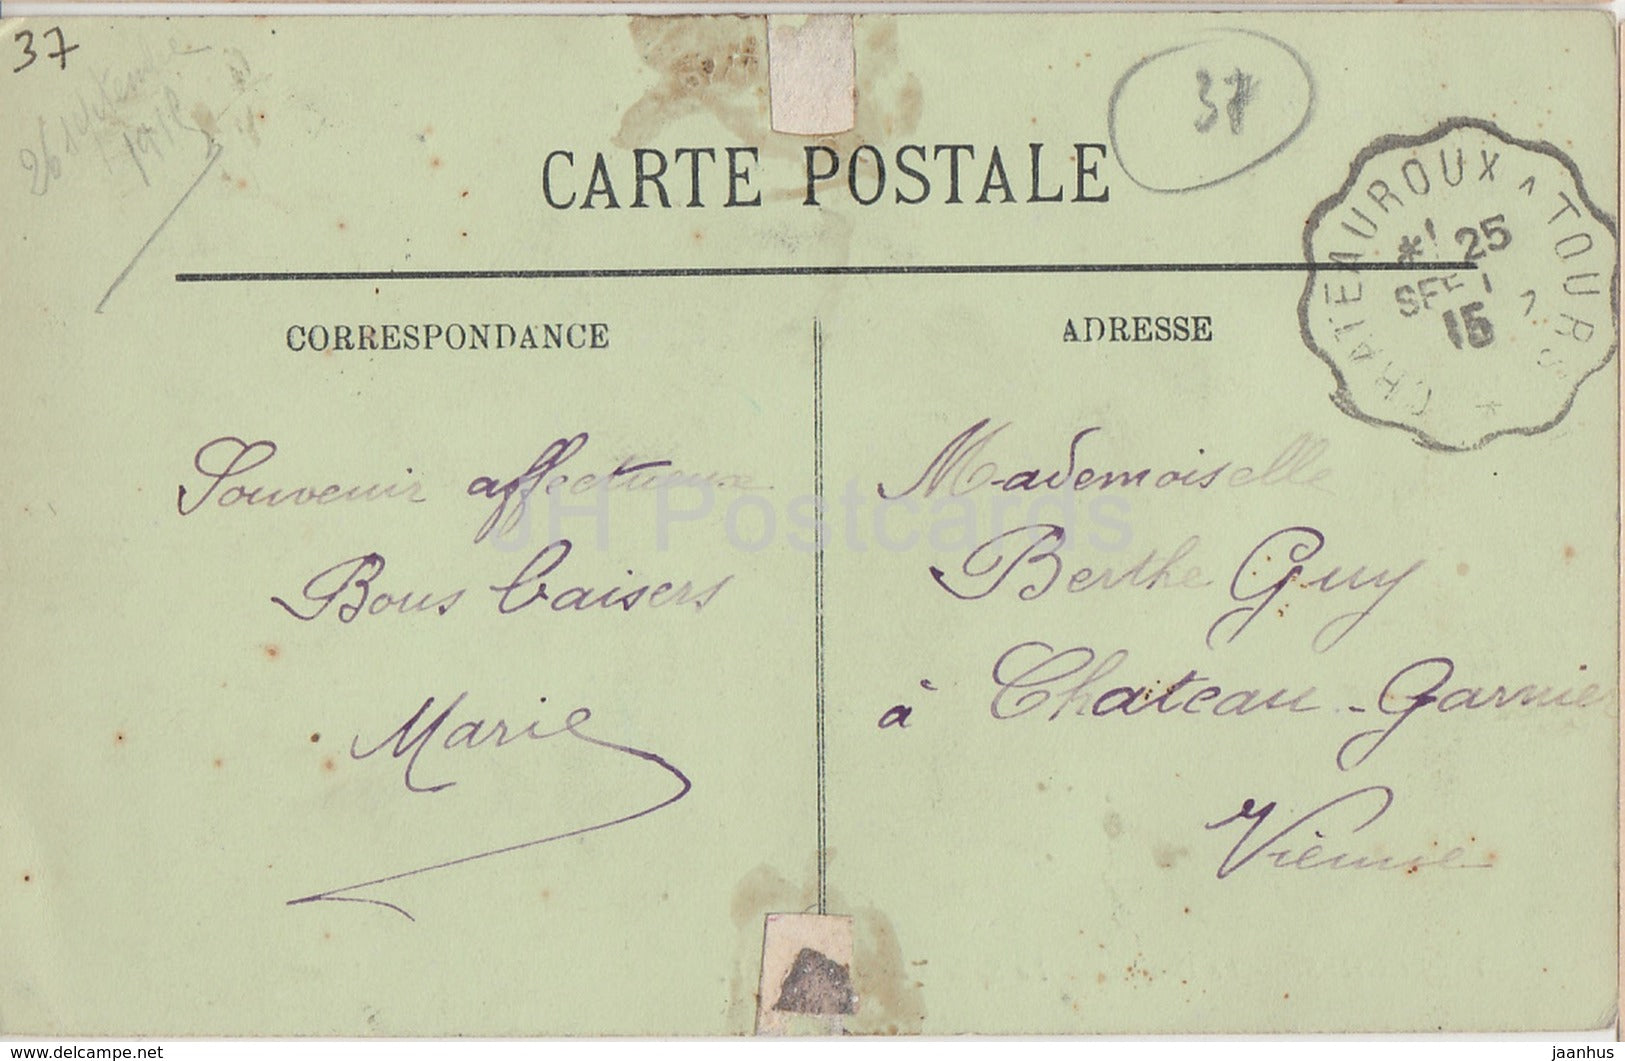 37
26 septembre
1915
37
CARTE POSTALE
CHATEAUROUX A TOURS
*1 25
SEPT
15
CORRESPONDANCE
ADRESSE
Souvenir affectueux
Bons baisers
Marie
Mademoiselle
Berthe Guy
à Chateau-Garnier
Vienne
JH Postcards
delcampe.net
jaanhus